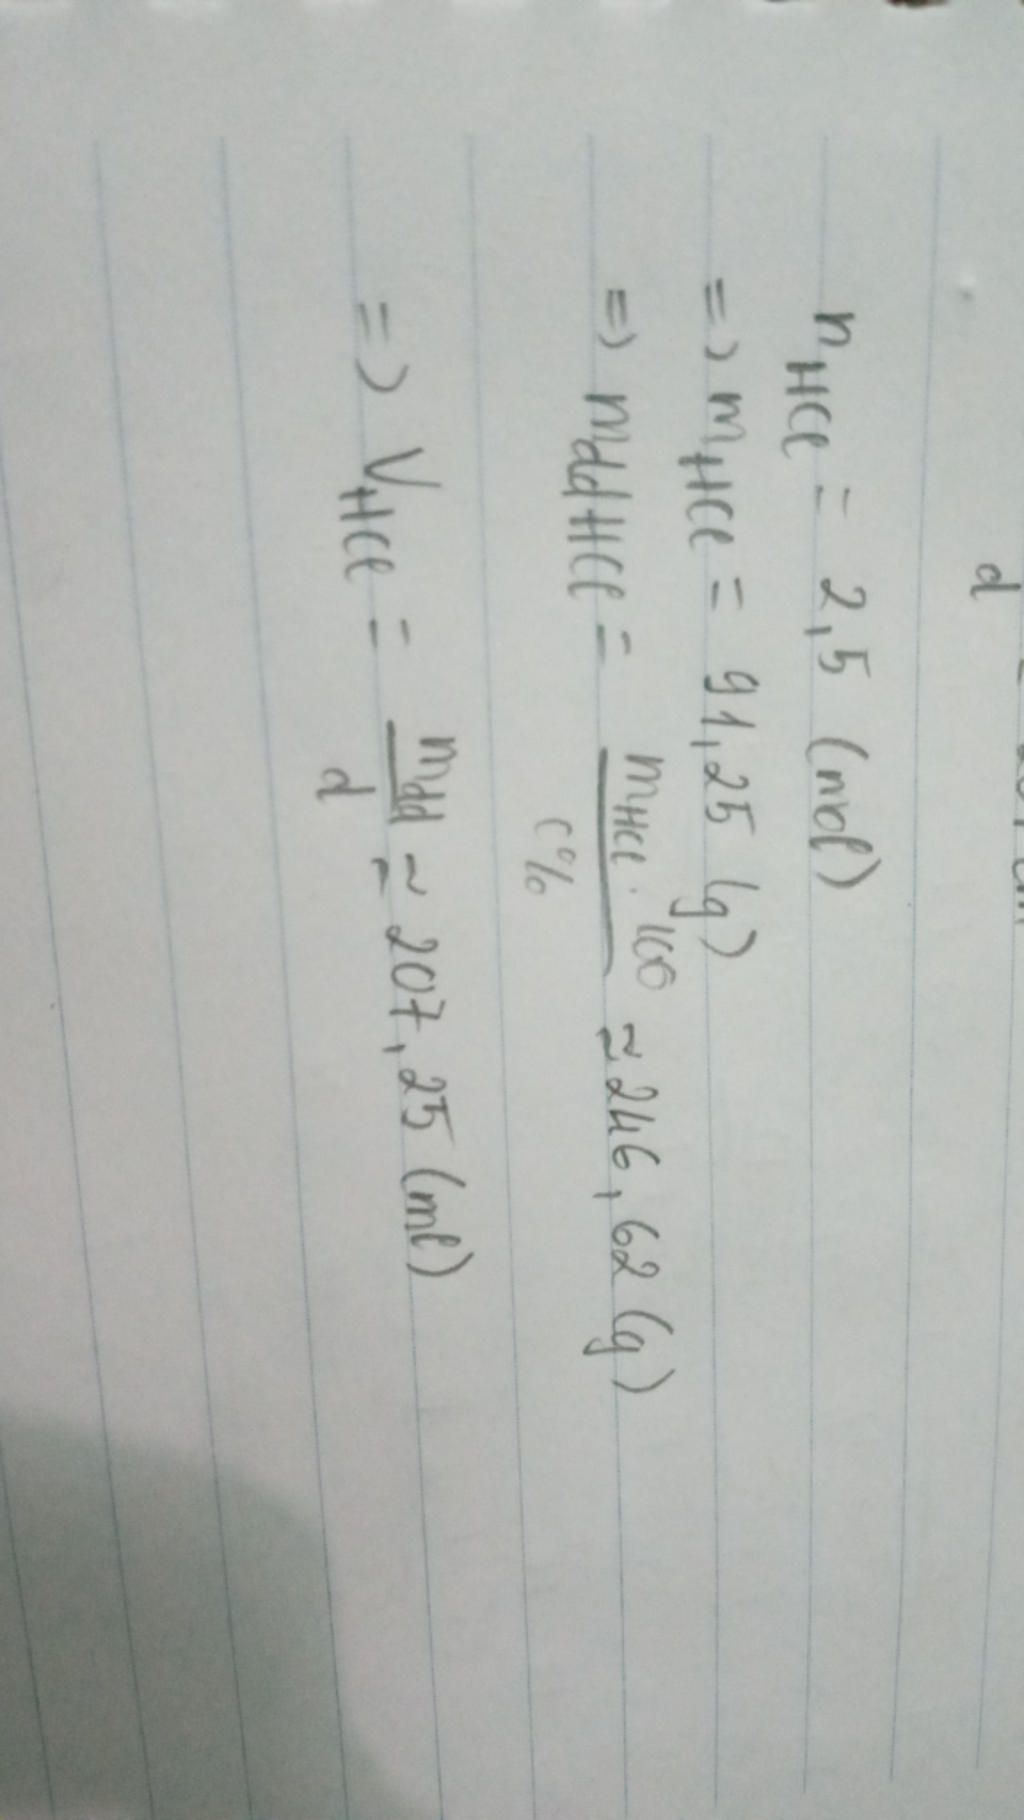 d
n HCl = 2,5 (mol)
=> m HCl = 91,25 (g)
=> m dd HCl = m HCl . 100 / C% ≈ 246,62 (g)
=> V HCl = m dd / d ≈ 207,25 (ml)